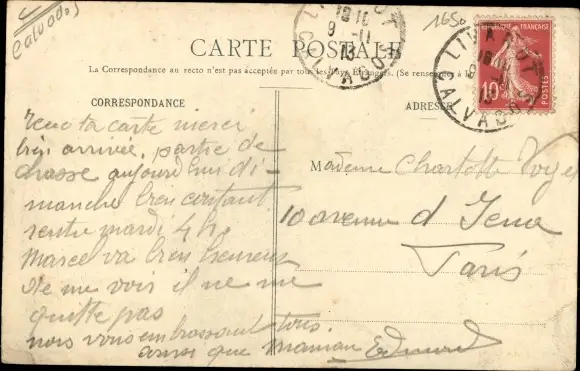 Calvados
1650
CARTE POSTALE
La Correspondance au recto n'est pas acceptée par tous les Pays Étrangers. (Se renseigner à la
CORRESPONDANCE
ADRESSE
LIVAROT
CALVADOS
9 -11
13
LIVAROT
CALVADOS
RÉPUBLIQUE FRANÇAISE
10c
POSTES
recu ta carte merci
bien arrivée, partie de
chasse aujourd hui di-
manche bien contant
rentre mardi 4 h.
Marcel va bien heureux
de me voir il ne me
quitte pas
nous vous embrassont tous.
ainsi que maman Edmond
Madame Charlotte
10 avenue d Iena
Paris